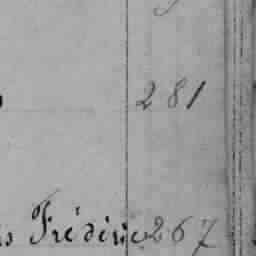 281
Frédéric 267